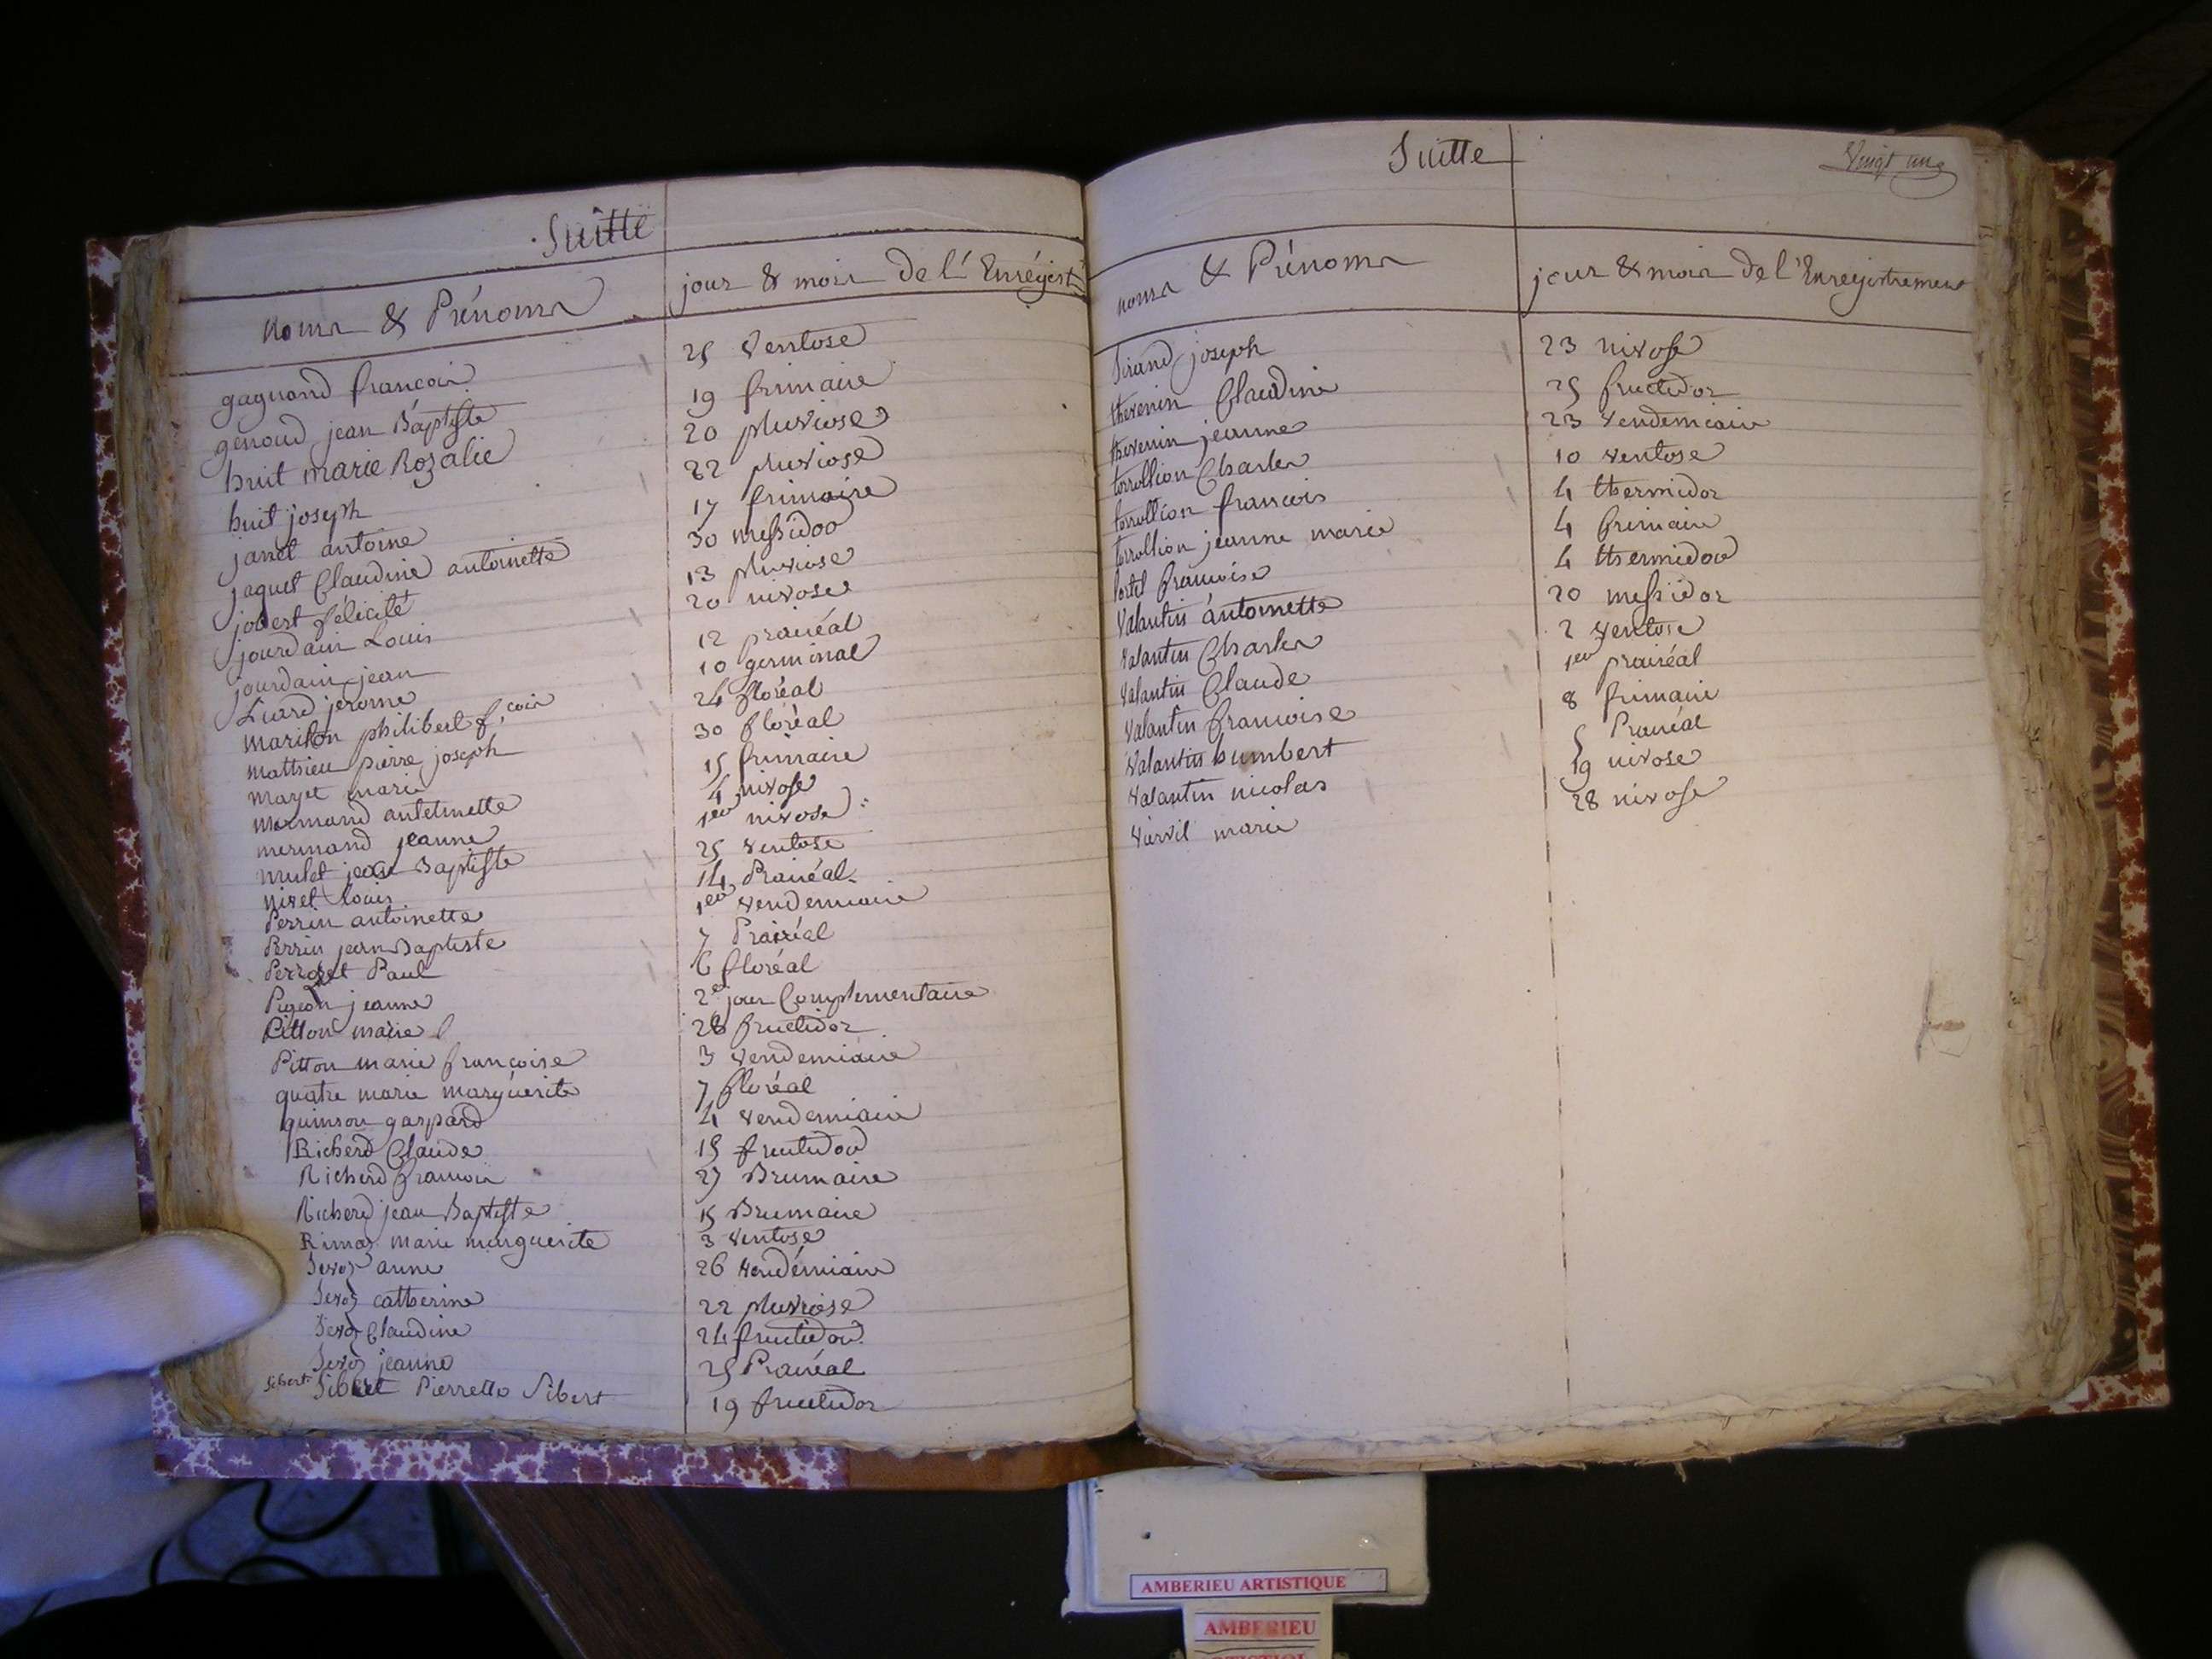 Suitte
noms & Prénoms jour & mois de l'Enrégist
gagnand francois 25 Ventose
genoud jean Baptiste 19 frimaire
huit marie Rozalie 20 pluviose
huit joseph 22 pluviose
janet antoine 17 frimaire
jaquet Claudine antoinette 30 messidor
jobert félicité 13 pluviose
jourdain Louis 20 nivose
jourdain jean 12 prairéal
Liard jerome 10 germinal
mariton philibert f.cois 24 floréal
matthieu pierre joseph 30 floréal
mayet marie 15 frimaire
mermand antelmette 4 nivose
mermand jeanne 1er nivose
mulet jean Baptiste 25 ventose
nivet Louis 14 Prairéal
Perrin antoinette 1er vendemiaire
Perrin jean Baptiste 7 Prairéal
Perrozet Paul 6 floréal
Pigeon jeanne 2e jour Complementaire
Pitton marie 28 fructidor
Pitton marie françoise 3 vendemiaire
quatre marie marguerite 7 floréal
quinson gaspard 4 vendemiaire
Richerd Claude 15 fructidor
Richerd francois 27 Brumaire
Richerd jean Baptiste 15 Brumaire
Rimaz marie marguerite 3 ventose
Servoz anne 26 vendémiaire
Servoz catherine 22 pluviose
Servoz Claudine 24 fructidor
Servoz jeanne 25 Prairéal
Sibert Pierrette Sibert 19 fructidor
Suitte
Vingt un
noms & Prénoms jour & mois de l'Enregistrement
Sirand joseph 23 nivose
thevenin Claudine 25 fructidor
thevenin jeanne 23 vendemiaire
torrollion Charles 10 ventose
torrollion francois 4 thermidor
torrollion jeanne marie 4 frimaire
françoise 4 thermidor
Valantin antoinette 20 messidor
valantin Charles 2 ventose
valantin Claude 1er prairéal
valantin francoise 8 frimaire
valantin humbert 5 Prairéal
valantin nicolas 19 nivose
viervil marie 28 nivose
AMBERIEU ARTISTIQUE
AMBERIEU